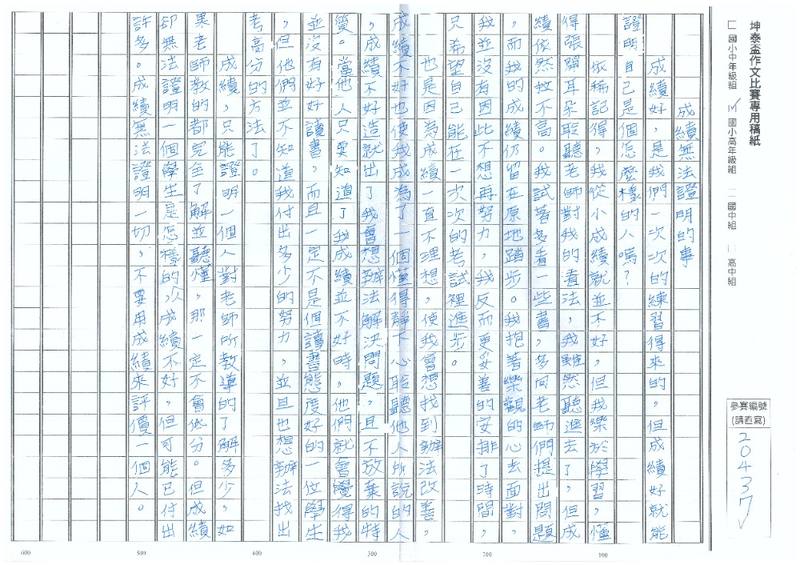 坤泰盃作文比賽專用稿紙
國小中年級組 ✓ 國小高年級組 國中組 高中組
參賽編號
(請直寫)
20437
成績無法證明的事
成績好,是我們一次次的練習得來的,但成績好就能
證明自己是個怎麼樣的人嗎?
依稀記得,我從小成績就並不好,但我樂於學習,懂
得張開耳朵聆聽老師對我的看法,我雖然聽進去了,但成
績依然拉不高。我試著多看一些書,多向老師們提出問題
,而我的成績仍留在原地踏步。我抱著樂觀的心去面對,
我並沒有因此不想再努力,我反而更妥善的安排了時間,
只希望自己能在一次次的考試裡進步。
也是因為成績一直不理想,使我會想找到辦法改善,
成績不好也使我成為了一個懂得靜下心聆聽他人所說的人
,成績不好造就出了我會想辦法解決問題,且不放棄的特
質。當他人只要知道了我成績並不好時,他們就會覺得我
並沒有好好讀書,而且一定不是個讀書態度好的一位學生
,但他們並不知道我付出多少的努力,並且也想辦法找出
考高分的方法了。
成績,只能證明一個人對老師所教導的了解多少,如
果老師教的都完全了解並聽懂,那一定不會低分。但成績
卻無法證明一個學生是怎樣的人,成績不好,但可能已付出
許多。成績無法證明一切,不要用成績來評價一個人。
100
200
300
400
500
600